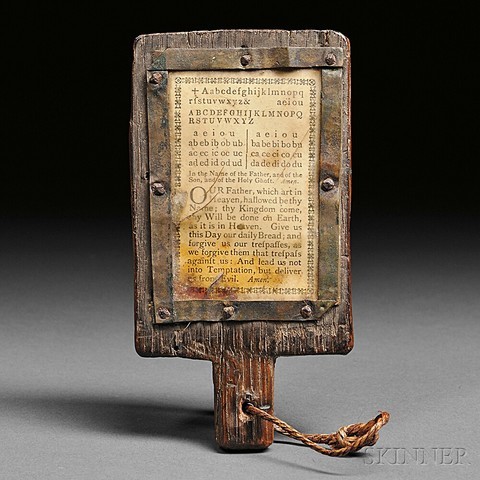 &
✝Aabcdefghijklmnopq
rſstuvwxyz& aeiou
ABCDEFGHIJKLMNOPQ
RSTUVWXYZ
a e i o u | a e i o u
ab eb ib ob ub | ba be bi bo bu
ac ec ic oc uc | ca ce ci co cu
ad ed id od ud | da de di do du
In the Name of the Father, and of the
Son, and of the Holy Ghoſt. Amen.
OUR Father, which art in
Heaven, hallowed be thy
Name; thy Kingdom come,
thy Will be done on Earth,
as it is in Heaven. Give us
this Day our daily Bread; and
forgive us our treſpaſſes, as
we forgive them that treſpaſs
againſt us: And lead us not
into Temptation, but deliver
us from Evil. Amen.
SKINNER